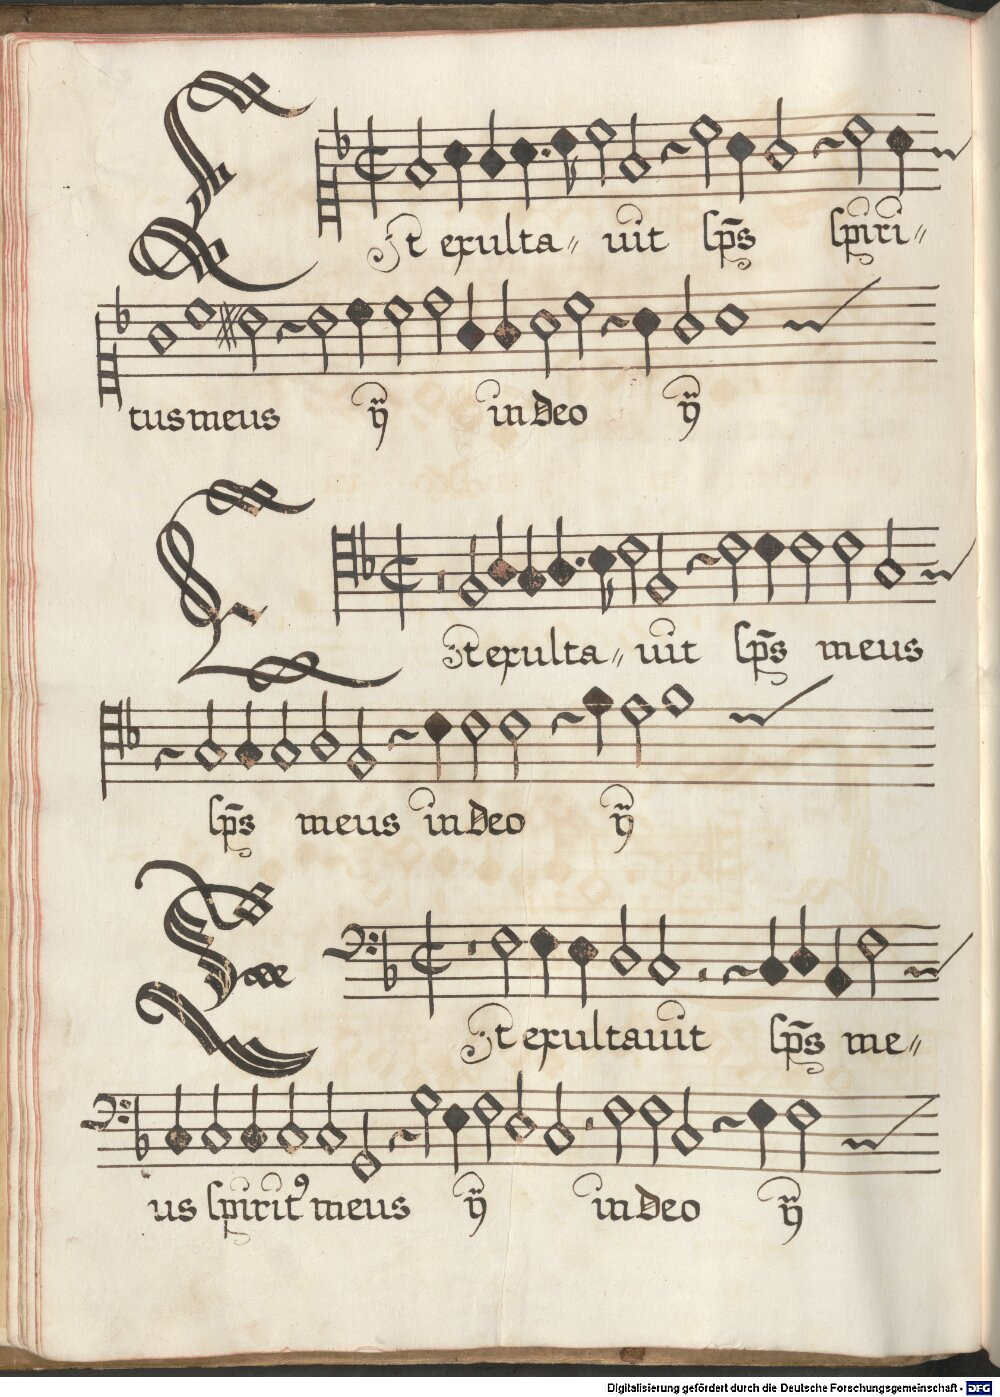 Et exulta〃 uit sp̄s spiri〃
tus meus ÿ in Deo ÿ
Et exulta〃 uit sp̄s meus
sp̄s meus in Deo ÿ
Et exultauit sp̄s me〃
us spiritꝰ meus ÿ in Deo ÿ
Digitalisierung gefördert durch die Deutsche Forschungsgemeinschaft - DFG